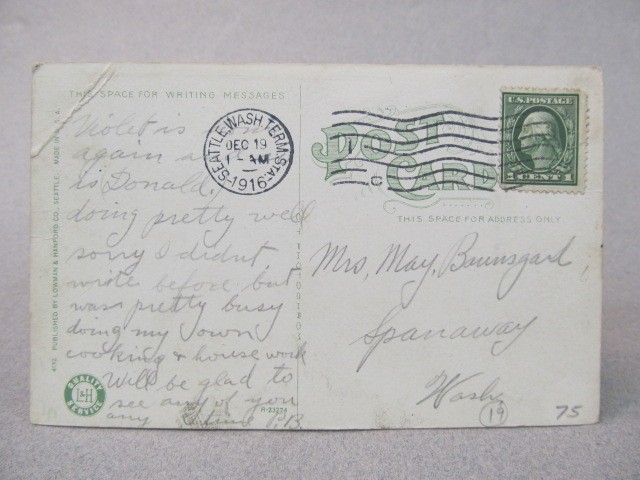 THIS SPACE FOR WRITING MESSAGES
Violet is
again
is Donald,
doing pretty well
sorry I didnt
wrote before but
was pretty busy
doing my own
cooking & house work
Will be glad to
see any of you
any time P.B.
SEATTLE, WASH. TERM. STA.
DEC 19
1 AM
1916
C
POST CARD
THIS SPACE FOR ADDRESS ONLY
U.S. POSTAGE
1 CENT 1
Mrs, May, Baunsgard,
Spanaway
Wash,
19
75
R-23274
QUALITY
L&H
SERVICE
PUBLISHED BY LOWMAN & HANFORD CO., SEATTLE. MADE IN U.S.A.